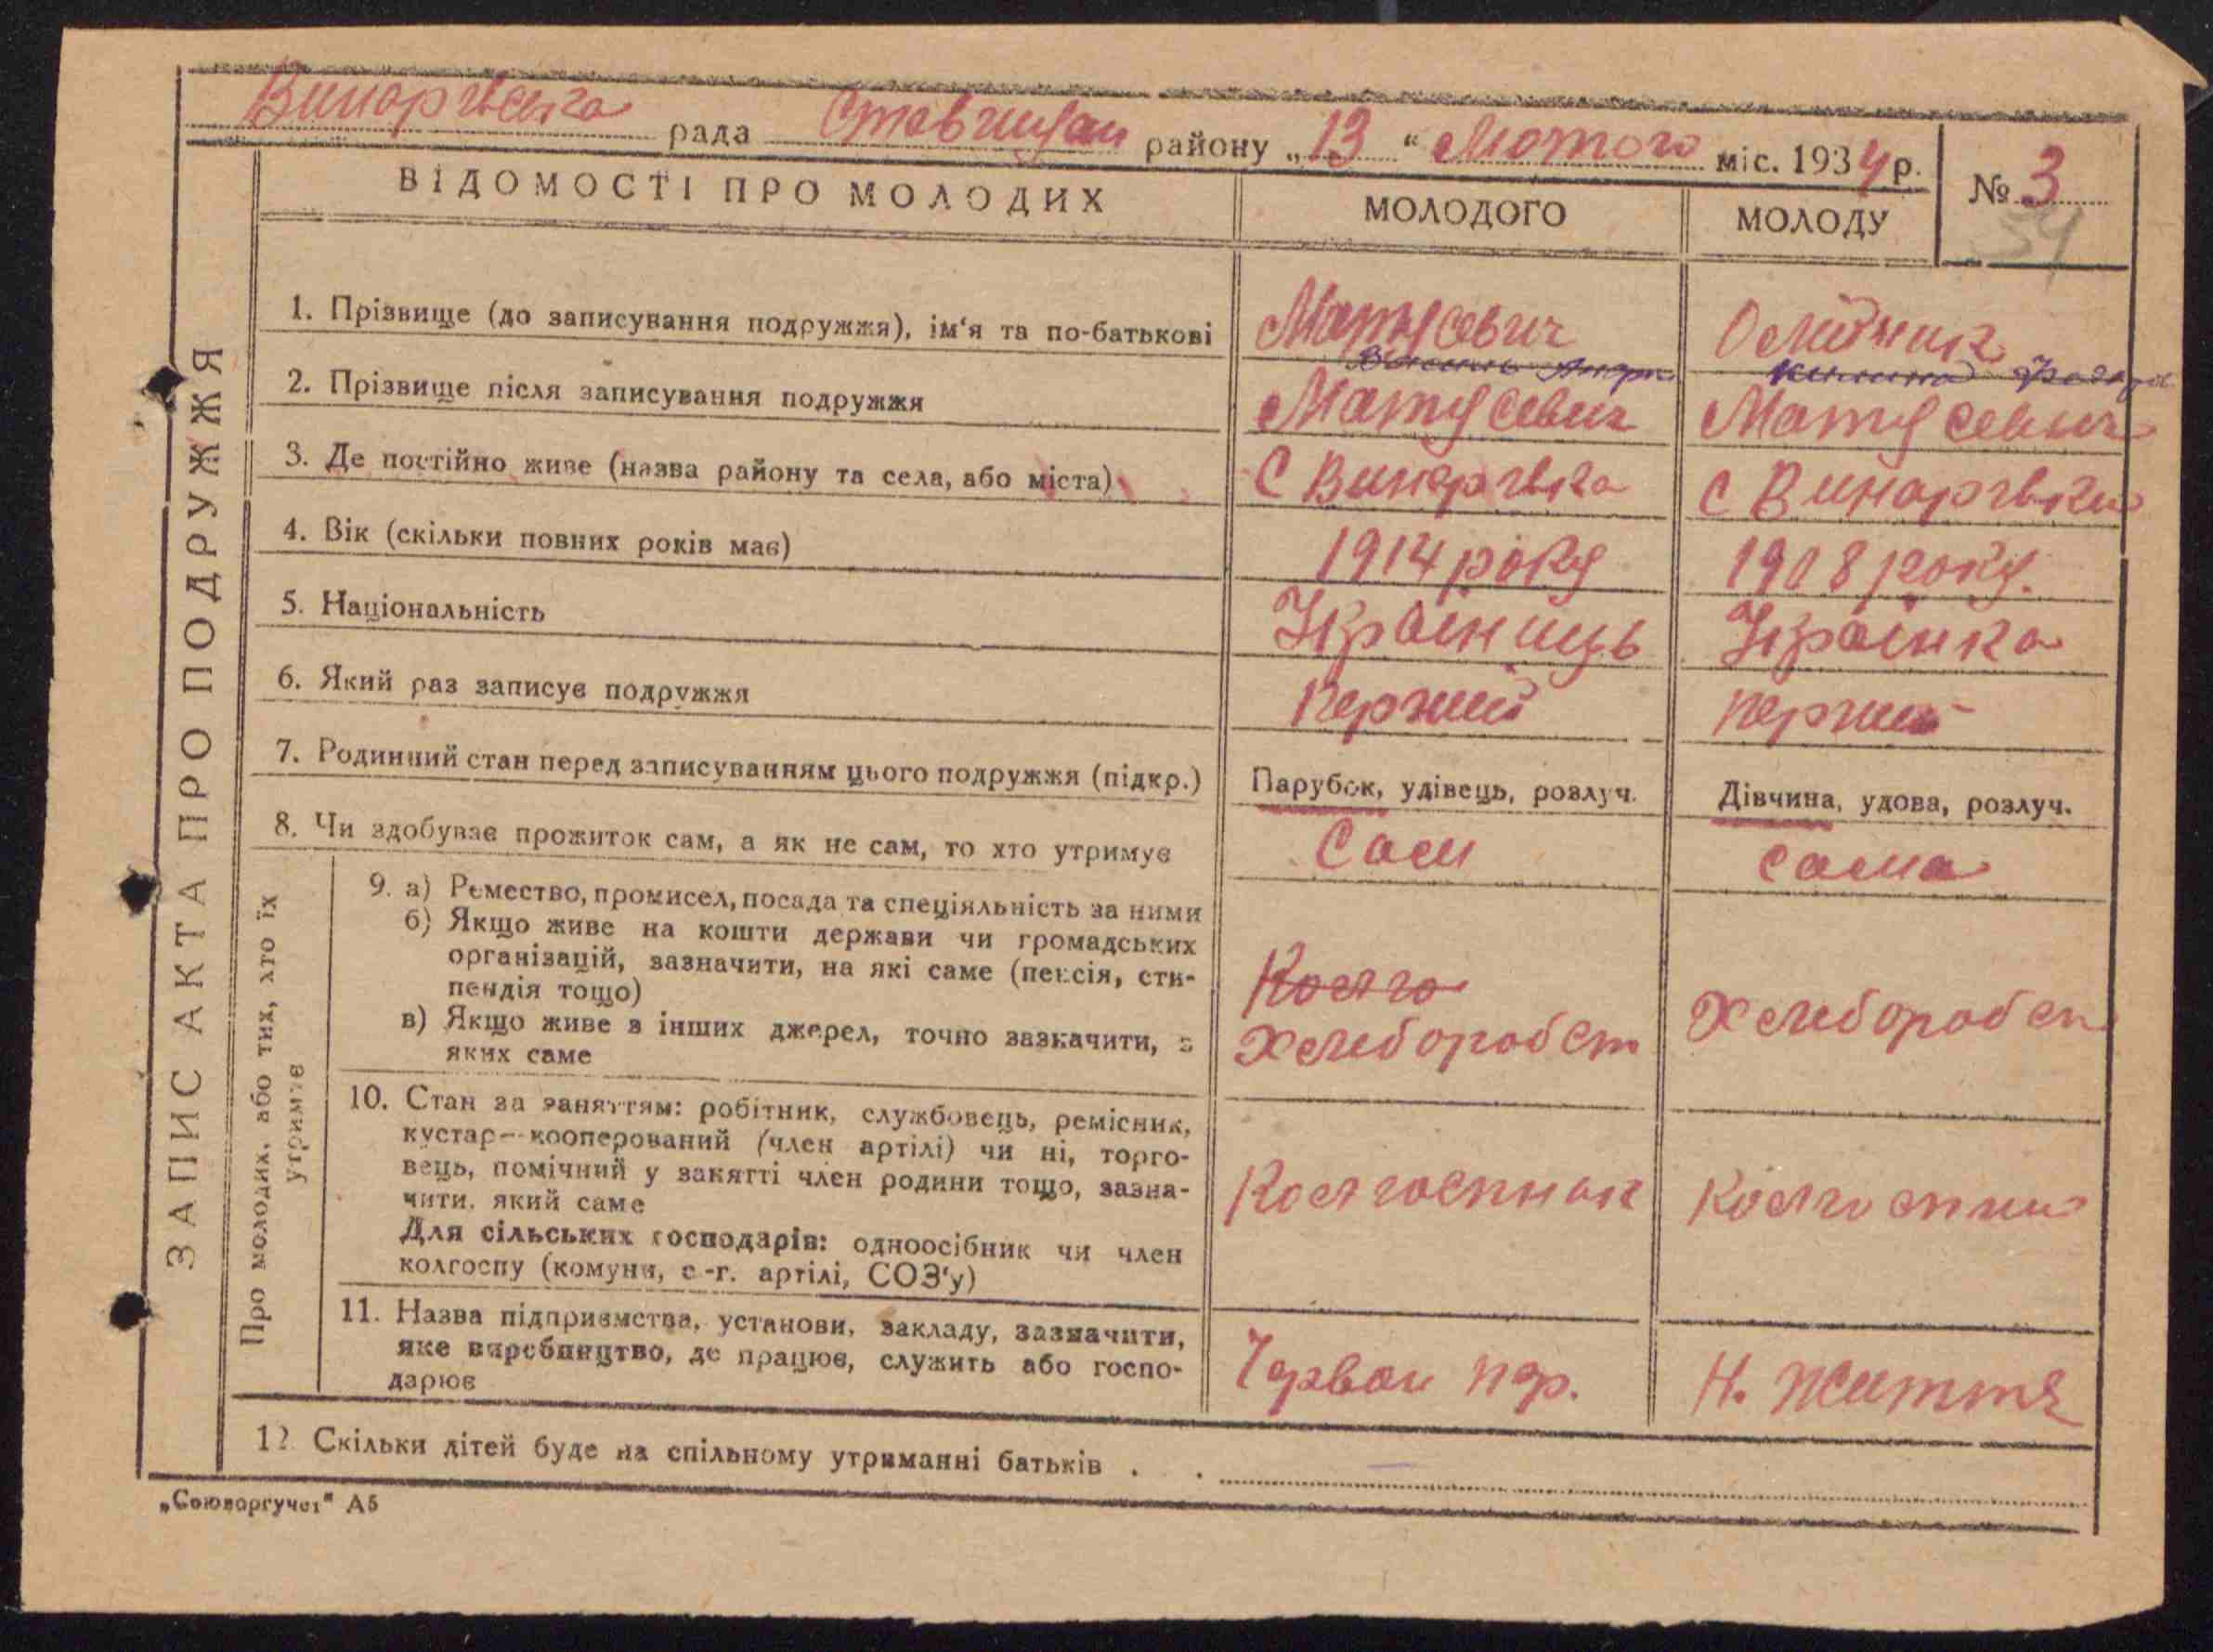 Винарівська рада Ставищан району „13“ Лютого міс. 1934 р.
№ 3
54
ВІДОМОСТІ ПРО МОЛОДИХ
МОЛОДОГО
МОЛОДУ
ЗАПИС АКТА ПРО ПОДРУЖЖЯ
1. Прізвище (до записування подружжя), ім‘я та по-батькові
Матусевич
Олійник
2. Прізвище після записування подружжя
Матусевич
Матусевич
3. Де постійно живе (назва району та села, або міста)
С Винарівка
С Винарівки
4. Вік (скільки повних років має)
1914 року
1908 року.
5. Національність
Україниць
Українка
6. Який раз записує подружжя
Перший
перший
7. Родинний стан перед записуванням цього подружжя (підкр.)
Парубок, удівець, розлуч.
Дівчина, удова, розлуч.
8. Чи здобуває прожиток сам, а як не сам, то хто утримує
Сам
сама
Про молодих, або тих, хто їх
утримує
9. а) Ремество, промисел, посада та спеціяльність за ними
б) Якщо живе на кошти держави чи громадських
організацій, зазначити, на які саме (пенсія, сти-
пендія тощо)
в) Якщо живе з інших джерел, точно зазначити, з
яких саме
Колго
Хлеборобст
Хлеборобст
10. Стан за заняттям: робітник, службовець, ремісник,
кустар—кооперований (член артілі) чи ні, торго-
вець, помічний у занятті член родини тощо, зазна-
чити, який саме
Для сільських господарів: одноосібник чи член
колгоспу (комуни, с.-г. артілі, СОЗ‘у)
Колгоспник
Колгоспниц
11. Назва підприємства, установи, закладу, зазначити,
яке виробництво, де працює, служить або госпо-
дарює
Червон пр.
Н. Життя
12. Скільки дітей буде на спільному утриманні батьків . .
„Союзоргучет“ А5